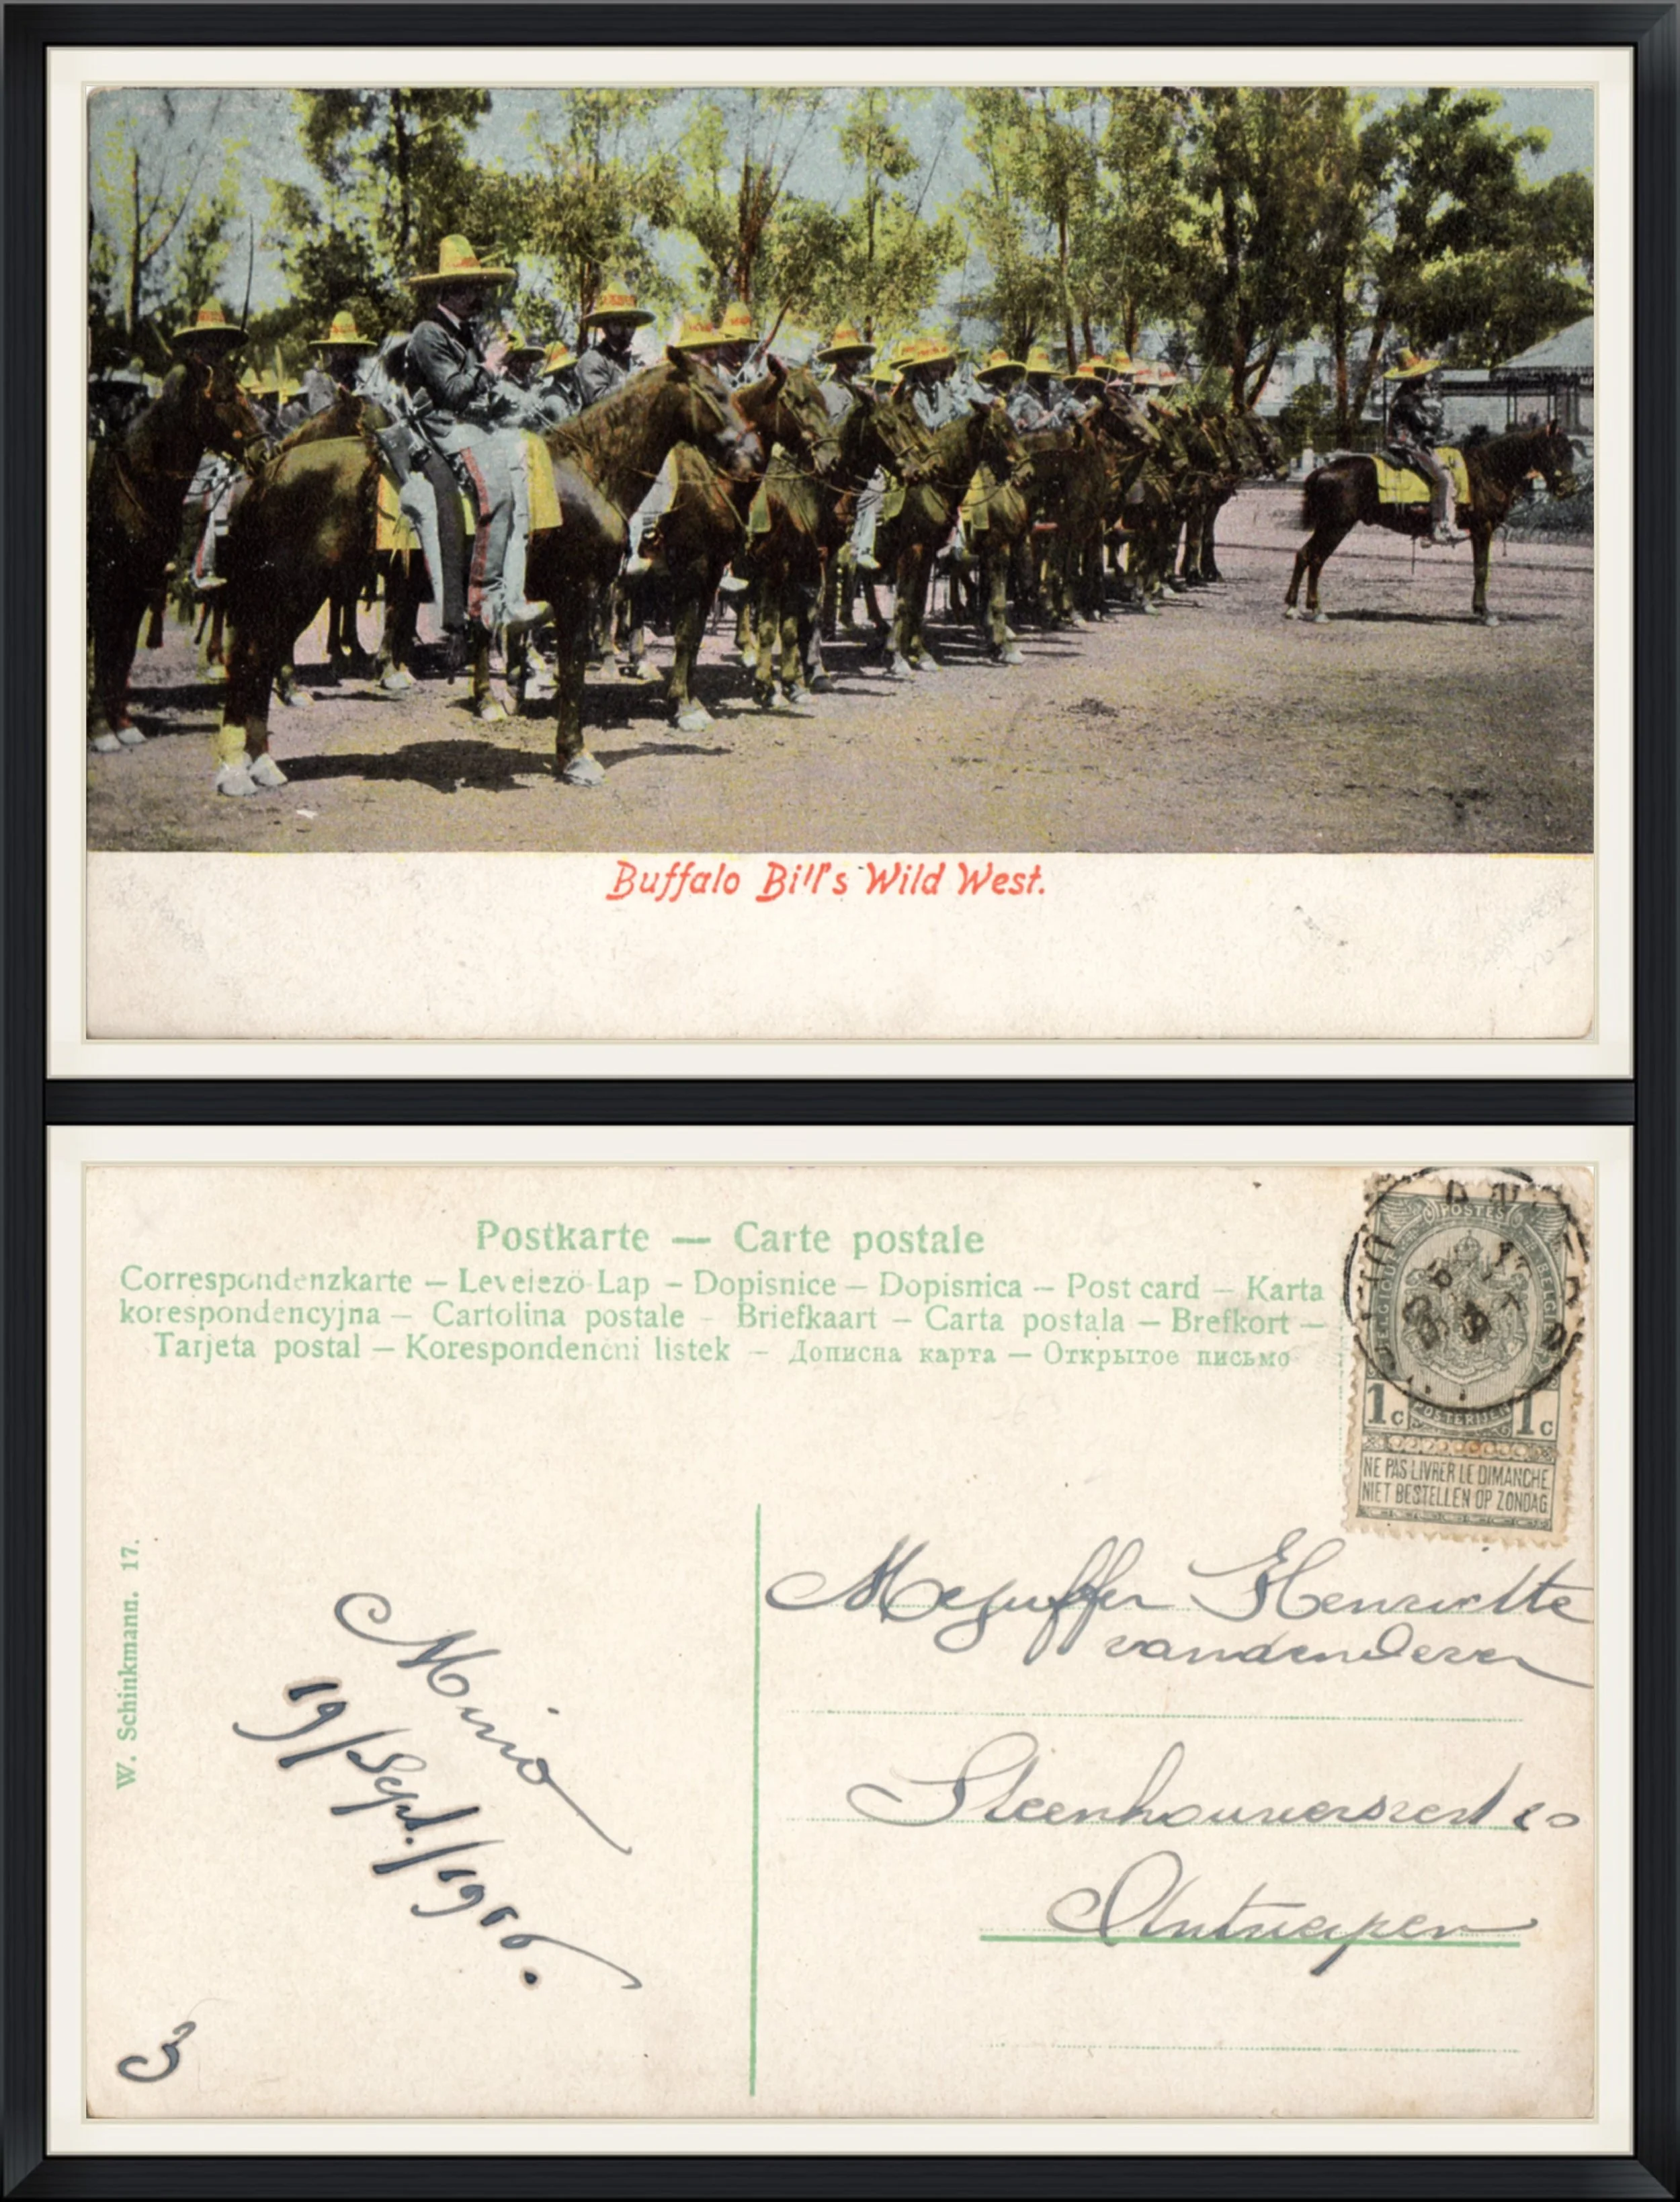 Buffalo Bill's Wild West.
Postkarte — Carte postale
Correspondenzkarte — Levelező-Lap — Dopisnice — Dopisnica — Post card — Karta
korespondencyjna — Cartolina postale — Briefkaart — Carta postala — Brefkort —
Tarjeta postal — Korespondenční listek — Дописна карта — Открытое письмо
POSTES
BELGIQUE BELGIË
1c POSTERIJEN 1c
NE PAS LIVRER LE DIMANCHE
NIET BESTELLEN OP ZONDAG
W. Schinkmann. 17.
Mino
19/Sept./1906.
3
Mejuffer Henriette
vanden
Steenhouwersvest
Antwerpen